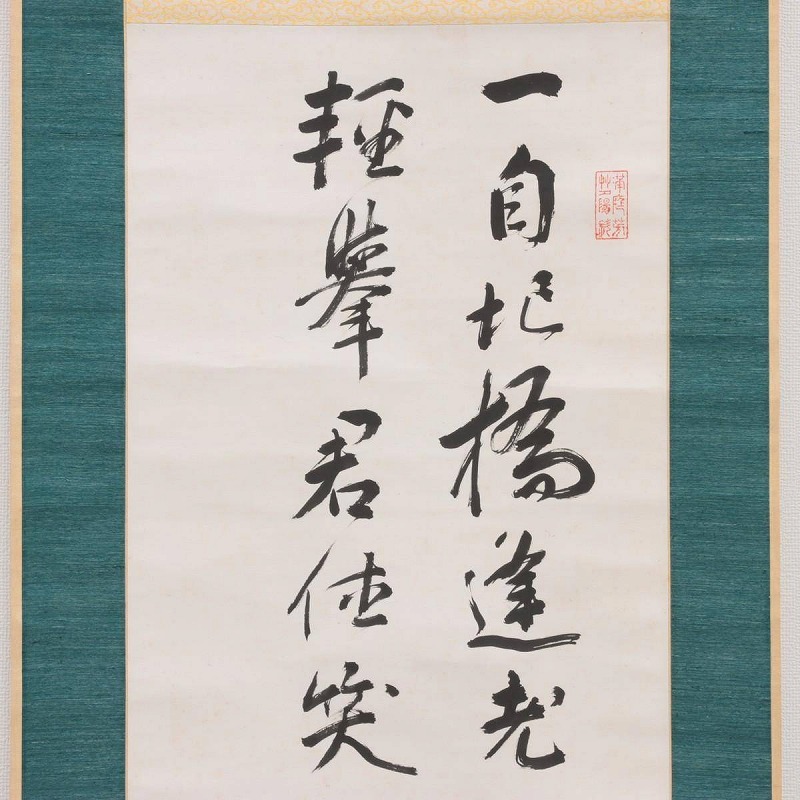 一自圯橋逢老
輕擧君任笑